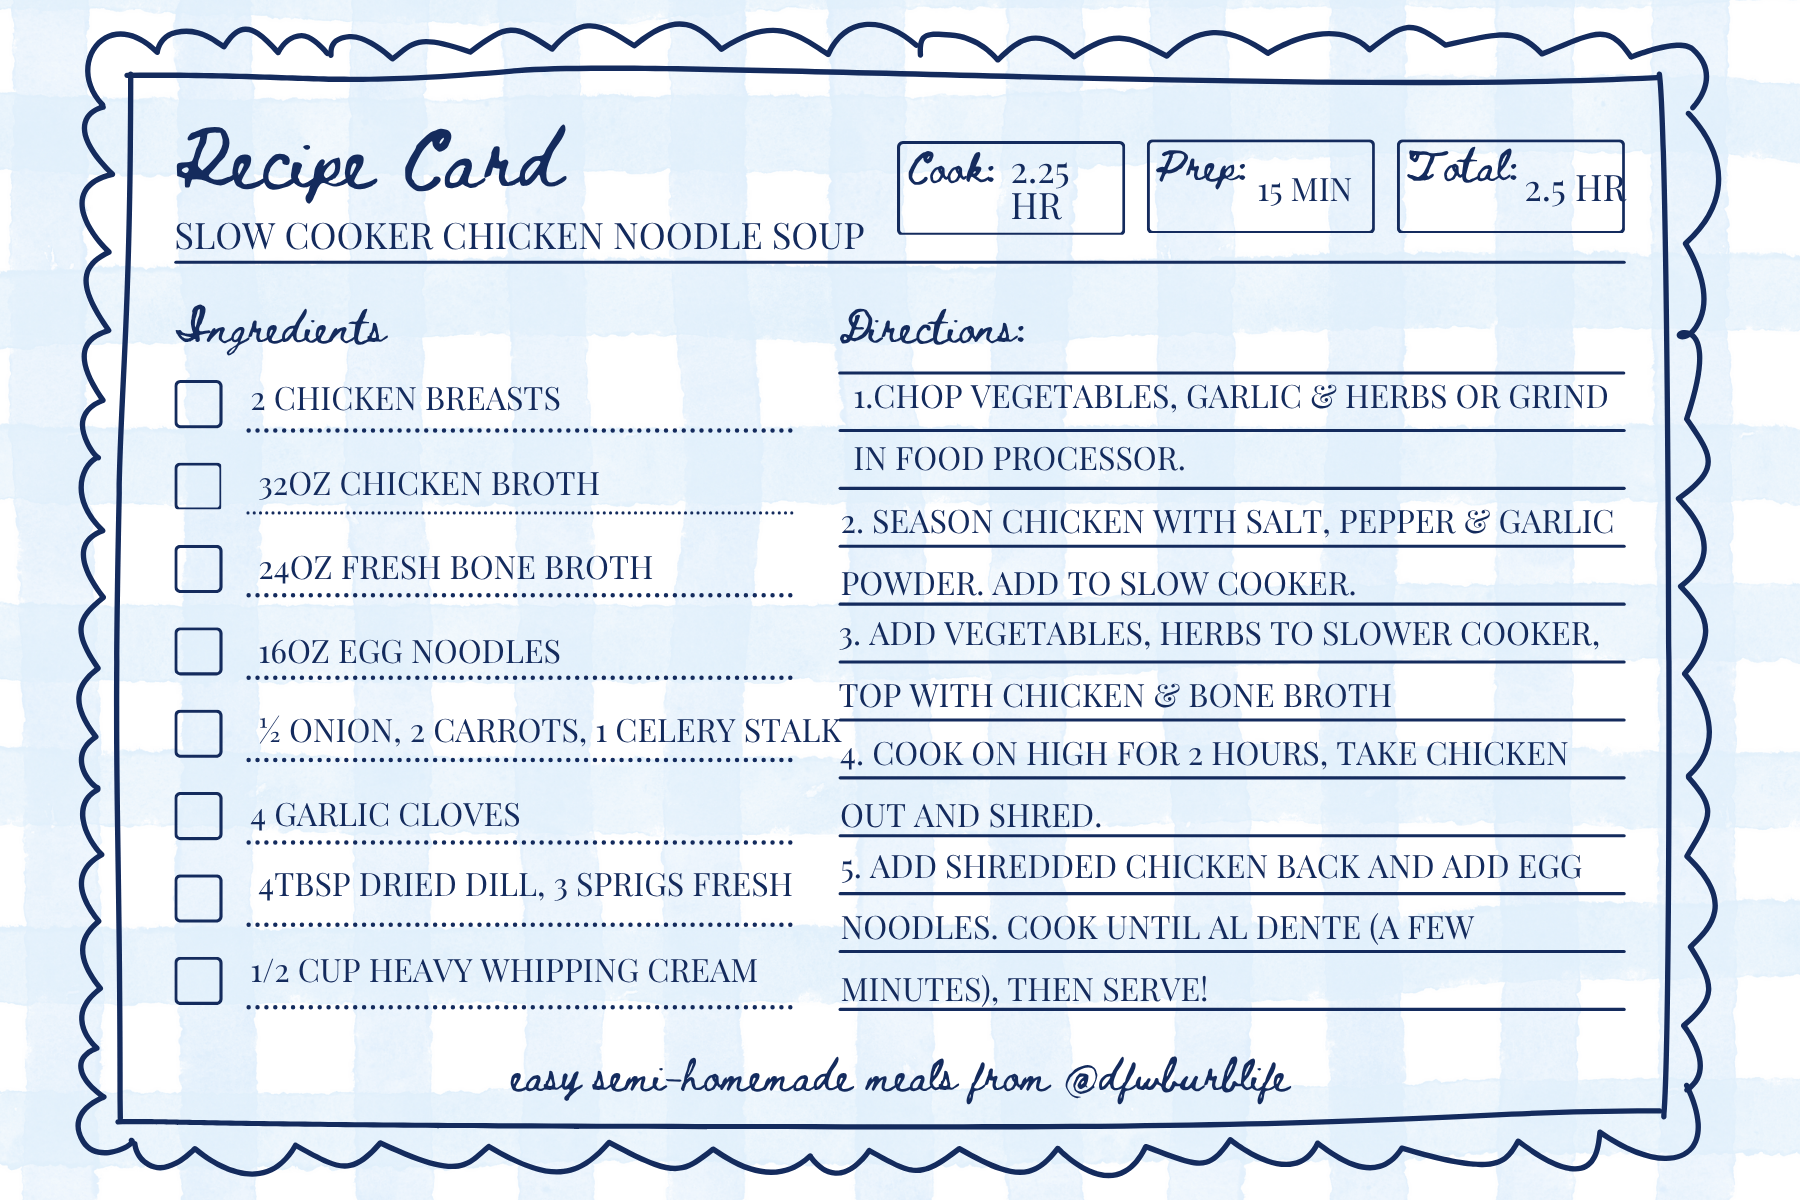 Recipe Card
SLOW COOKER CHICKEN NOODLE SOUP
Cook: 2.25
HR
Prep: 15 MIN
Total: 2.5 HR
Ingredients
2 CHICKEN BREASTS
32OZ CHICKEN BROTH
24OZ FRESH BONE BROTH
16OZ EGG NOODLES
½ ONION, 2 CARROTS, 1 CELERY STALK
4 GARLIC CLOVES
4TBSP DRIED DILL, 3 SPRIGS FRESH
1/2 CUP HEAVY WHIPPING CREAM
Directions:
1.CHOP VEGETABLES, GARLIC & HERBS OR GRIND
IN FOOD PROCESSOR.
2. SEASON CHICKEN WITH SALT, PEPPER & GARLIC
POWDER. ADD TO SLOW COOKER.
3. ADD VEGETABLES, HERBS TO SLOWER COOKER,
TOP WITH CHICKEN & BONE BROTH
4. COOK ON HIGH FOR 2 HOURS, TAKE CHICKEN
OUT AND SHRED.
5. ADD SHREDDED CHICKEN BACK AND ADD EGG
NOODLES. COOK UNTIL AL DENTE (A FEW
MINUTES), THEN SERVE!
easy semi-homemade meals from @dfwburblife